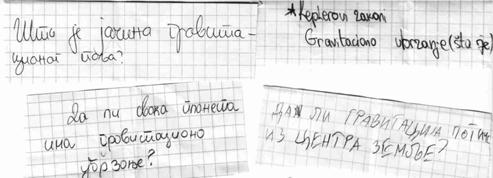 Шта је јачина гравита-
ционог поља?
*Keplerovi zakoni
Gravitaciono ubrzanje (šta je)
Да ли свака планета
има гравитационо
убрзање?
ДАЛ ЛИ ГРАВИТАЦИЈА ПОТИЧЕ
ИЗ ЦЕНТРА ЗЕМЉЕ?